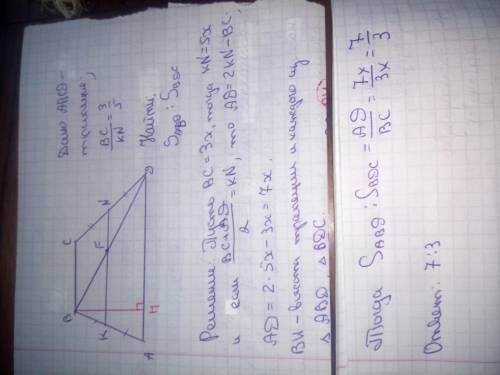 Дано: ABCD –
трапеция;
BC/KN = 3/5
Найти:
S_ABD : S_BDC
B C
K F N
A H D
Решение: Пусть BC = 3x, тогда KN = 5x
и если (BC + AD)/2 = KN, то AD = 2KN – BC.
AD = 2 · 5x – 3x = 7x.
BH – высота трапеции и каждого из
△ ABD, △ BDC.
Тогда S_ABD : S_BDC = AD/BC = 7x/3x = 7/3
Ответ: 7:3